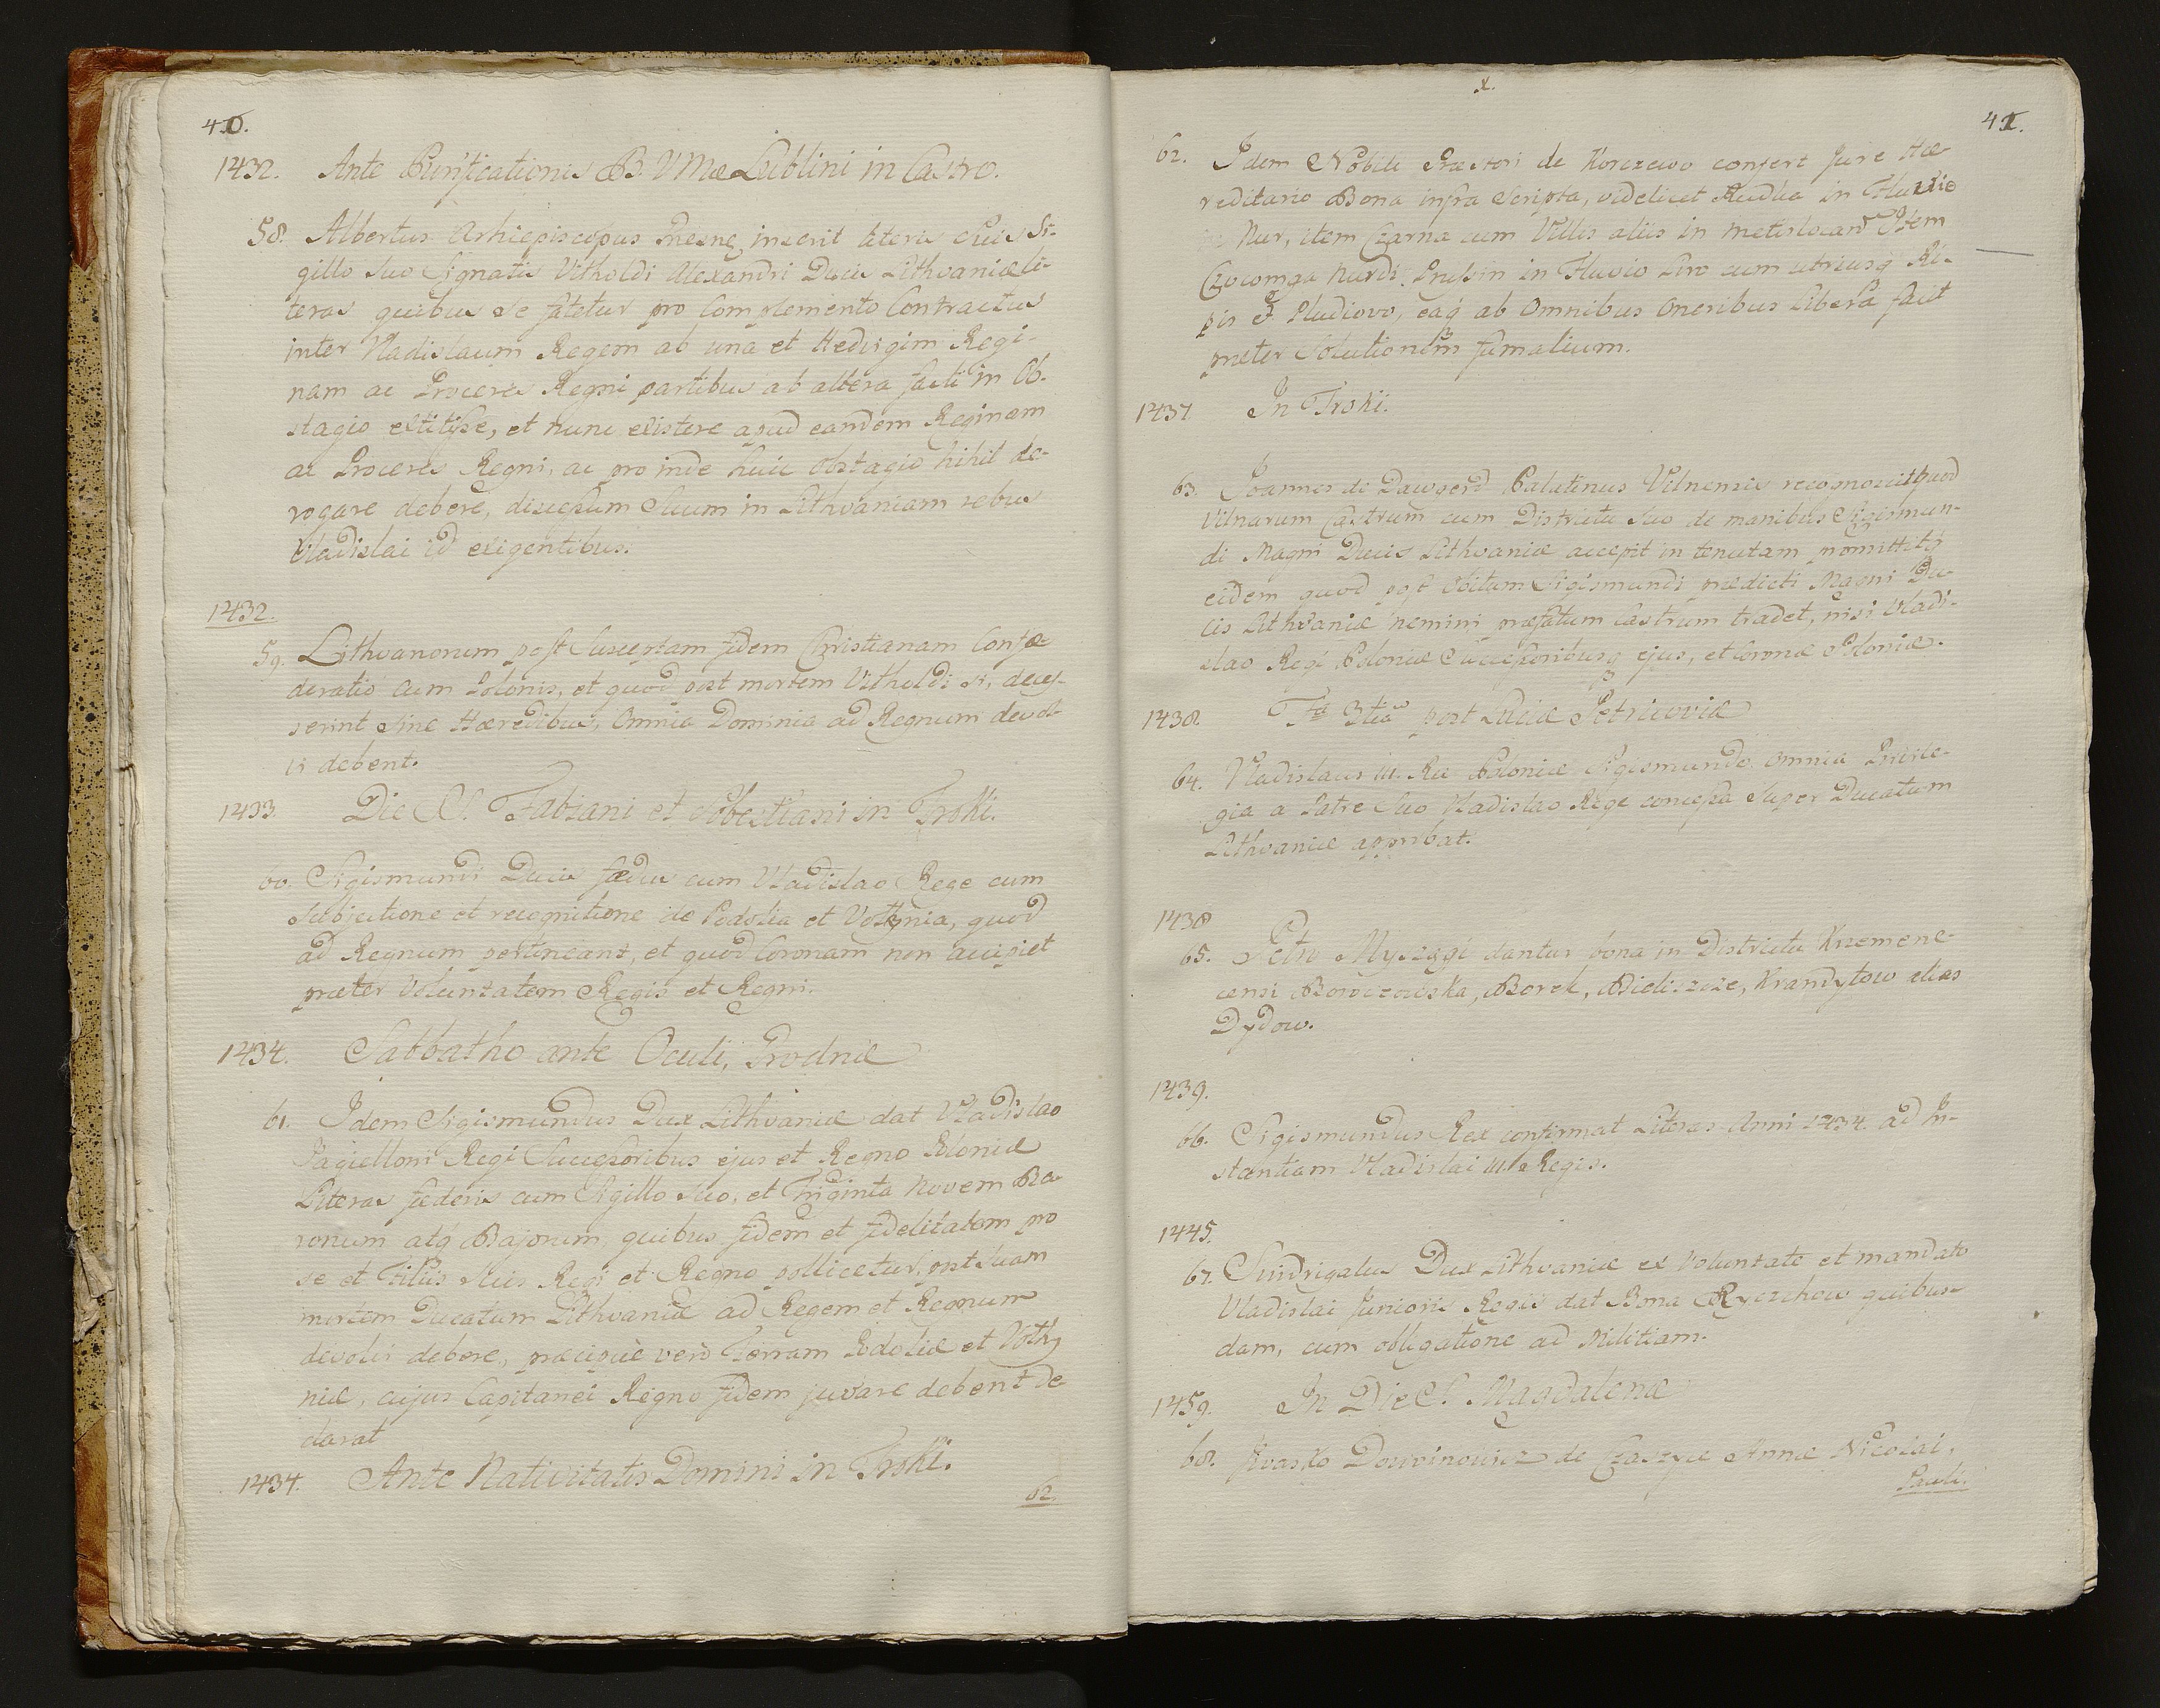 40.
1432. Ante Purificationis B. VMæ Lublini in Castro.
58. Albertus Arhiepiscopus Gnesnę inserit literis suis Si-
gillo suo Signatis Vitholdi Alexandri Ducis Lithvaniæ li-
teras quibus se fatetur pro Complemento Contractus
inter Vladislaum Regem ab una et Hedvigim Regi-
nam ac Proceres Regni partibus ab altera facti in Ob-
stagio extitisse, et nunc existere apud eandem Reginam
ac Proceres Regni, ac pro inde huic Obstagio nihil de-
rogare debere, discessum Suum in Lithvaniam rebus
Vladislai id exigentibus.
1432.
59. Lithvanorum post Susceptam fidem Christianam Confæ
deratio cum Polonis, et quod post mortem Vitholdi si, deces-
serint sine Hæredibus, Omnia Dominia ad Regnum devol-
vi debent.
1433. Die SS. Fabiani et Sebestiani in Troki.
60. Sigismundi Ducis fædus cum Vladislao Rege cum
Subjectione et recognitione de Podolia et Volhynia, quod
ad Regnum pertineant, et quod Coronam non accipiet
præter Voluntatem Regis et Regni.
1434. Sabbatho ante Oculi, Grodnæ
61. Idem Sigismundus Dux Lithvaniæ dat Vladislao
Jagielloni Regi Successoribus ejus et Regno Poloniæ
Literas fæderis cum Sigillo suo, et Triginta Novem Ba-
ronum atq Bajorum, quibus fidem et fidelitatem pro
se et Filiis suis Regi et Regno pollicetur, post suam
mortem Ducatum Lithvaniæ ad Regem et Regnum
devolvi debere, præcipuè verò Terram Podoliæ et Volhy
niæ, cujus Capitanei Regno fidem juvare debent de
darat
1434. Ante Nativitatis Domini in Troki.
62.
x.
41.
62. Idem Nobili Præstori de Korczewo confert Jure Hæ-
reditario Bona infra Scripta, videlicet Rudka in Fluvio
Nur, item Czarna cum Villis aliis in Item
Nurdi, in Fluvio Liro cum utriusq Ri-
pis et Pludiovo, eaq ab Omnibus Oneribus Libera facit
præter Solutionem fumalium.
1437 In Troki.
63. Joannes de Dawgerd Palatinus Vilnensis recognoscit quod
Vilnarum Castrum cum Districtu suo de manibus Sigismun-
di Magni Ducis Lithvaniæ accepit in tenutam promittitq
eidem quod post Obitum Sigismundi prædicti Magni Du-
cis Lithvaniæ nemini præfatum Castrum tradet, nisi Vladi-
slao Regi Poloniæ Successoribusq ejus, et Coronæ Poloniæ.
1438. Fa 3tia post Luciæ Petricoviæ
64. Vladislaus III. Rex Poloniæ Sigismundo omnia Privile-
gia a Patre Suo Vladislao Rege concessa Super Ducatum
Lithvaniæ approbat.
1438
65. Petro Myszęgi dantur bona in Districtu Krzemene-
censi Borek, Krandytow alias
Dydow.
1439.
66. Sigismundus Rex confirmat Literas Anni 1434. ad In-
stantiam Vladislai III. Regis.
1445.
67. Suidrigalus Dux Lithvaniæ ex Voluntate et mandato
Vladislai Junioris Regis dat Bona Ryczehow quibus-
dam, cum obligatione ad Militiam.
1459. In Die S. Magdalenæ
68. Jwasko Dowinowicz de Annæ Nicolai,
Pauli.